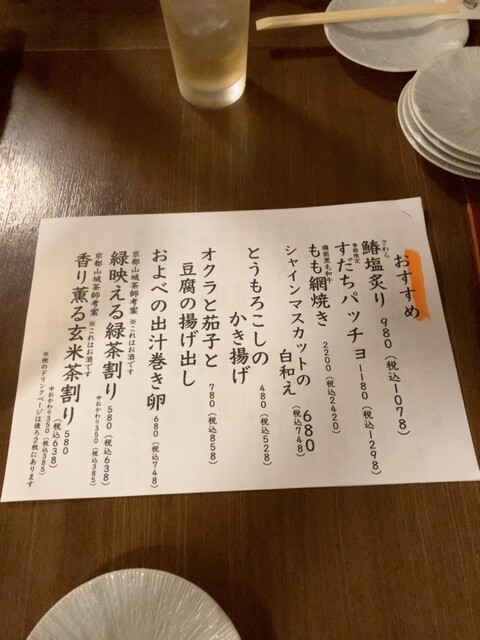 おすすめ
さわら
鰆塩炙り 980(税込1078)
季節限定
すだちパッチョ 1180(税込1298)
備前黒毛和牛
もも網焼き 2200(税込2420)
シャインマスカットの
白和え 680
(税込748)
とうもろこしの
かき揚げ
480(税込528)
オクラと茄子と
豆腐の揚げ出し
780(税込858)
およべの出汁巻き卵 680(税込748)
京都山城茶師考案 ※これはお酒です
緑映える緑茶割り 580(税込638)
中おかわり350(税込385)
京都山城茶師考案 ※これはお酒です
香り薫る玄米茶割り 580
(税込638)
中おかわり350(税込385)
※他のドリンクページは後ろ2枚にあります